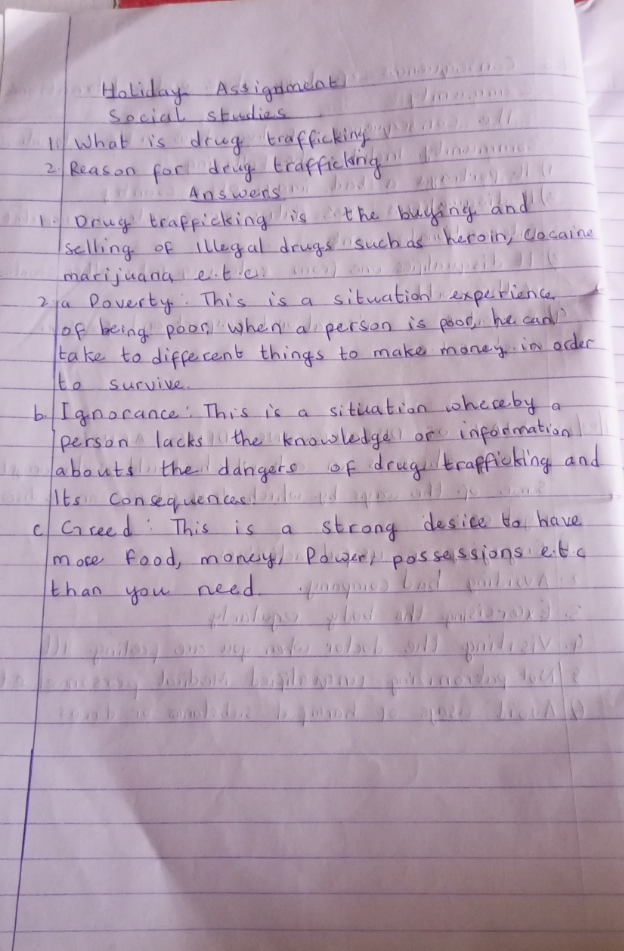 Holiday Assignment
Social studies
1. What is drug trafficking
2. Reason for drug trafficking
Answers
1. Drug trafficking is the buying and
selling of Illegal drugs such as heroin, Cocaine
marijuana e.t.c.
2. a Poverty: This is a situation experience
of being poor, when a person is poor, he can
take to different things to make money in order
to survive.
b. Ignorance: This is a situation whereby a
person lacks the knowledge or information
abouts the dangers of drug trafficking and
Its Consequences.
c Greed: This is a strong desire to have
more food, money, Power, possessions e.t.c
than you need.